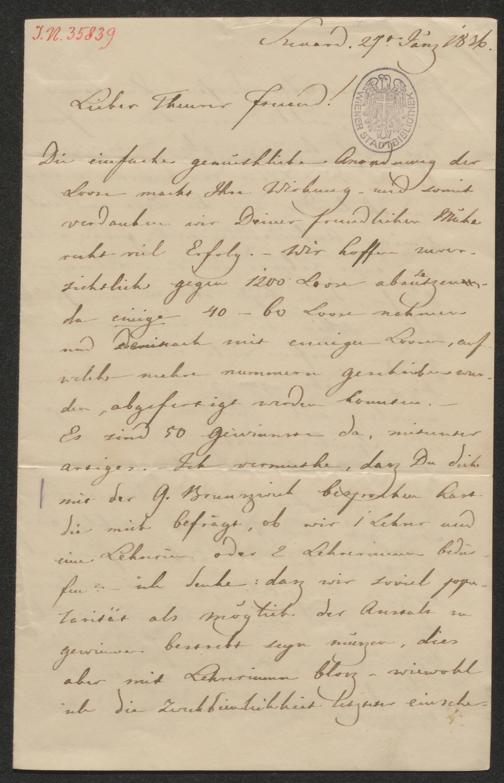 I.N. 35839
27t Jänz 1836.
WIENER STADTBIBLIOTHEK
Lieber Theurer Freund!
Die einfache gemüthliche Anordnung der
Loose macht Ihre Wirkung – und somit
verdanken wir Deiner freundlichen Mühe
recht viel Erfolg. – Wir hoffen zuver-
sichtlich gegen 1200 Loose abzusetzen –
da einige 40 – 60 Loose nehmen
und mit einigen Loosen, auf
welche mehre nummern geschrieben wur-
den, abgefertigt werden konnten. –
Es sind 50 Gewinnste da, mitunter
artige. – Ich vermuthe, dasz Du dich
mit der G. Brunszwick besprochen hast
die mich befrägt, ob wir 1 Lehrer und
eine Lehrerin oder 2 Lehrerinnen bedür-
fen? – ich denke: dasz wir soviel popu-
larität als möglich der Anstalt zu
gewinnen bestrebt seyn müszen, dies
aber mit Lehrerinnen blosz – wiewohl
ich die Zweckdienlichkeit letzterer einsehe –